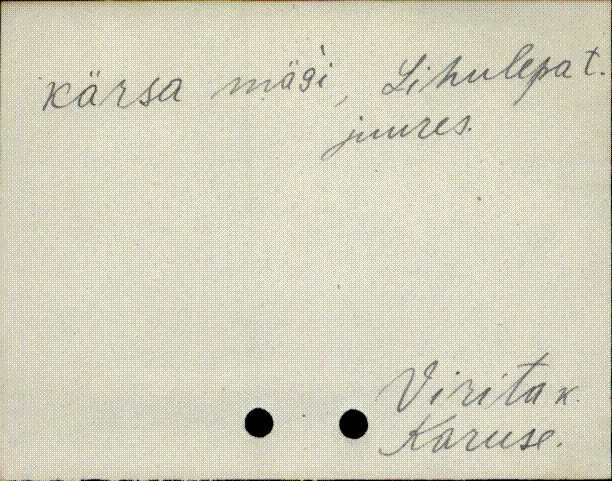 kärsa mägi, Lihulepa t.
juures.
Virita k.
Karuse.